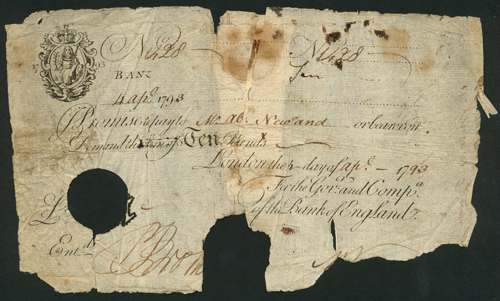 No 428 No 428
17 93 Ten
BANK
4 Apl 1793
I Promise to pay to Mr Ab. Newland or bearer on
Demand the Sum of Ten Pounds
London the 4 day of Apl 1793
For the Govr and Compa
of the Bank of England.
£
Entd